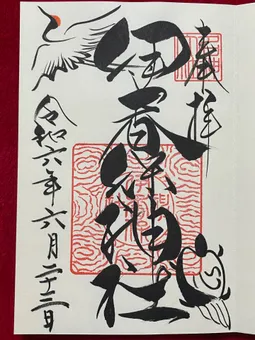 奉拝
伊香保神社
令和六年六月二十二日